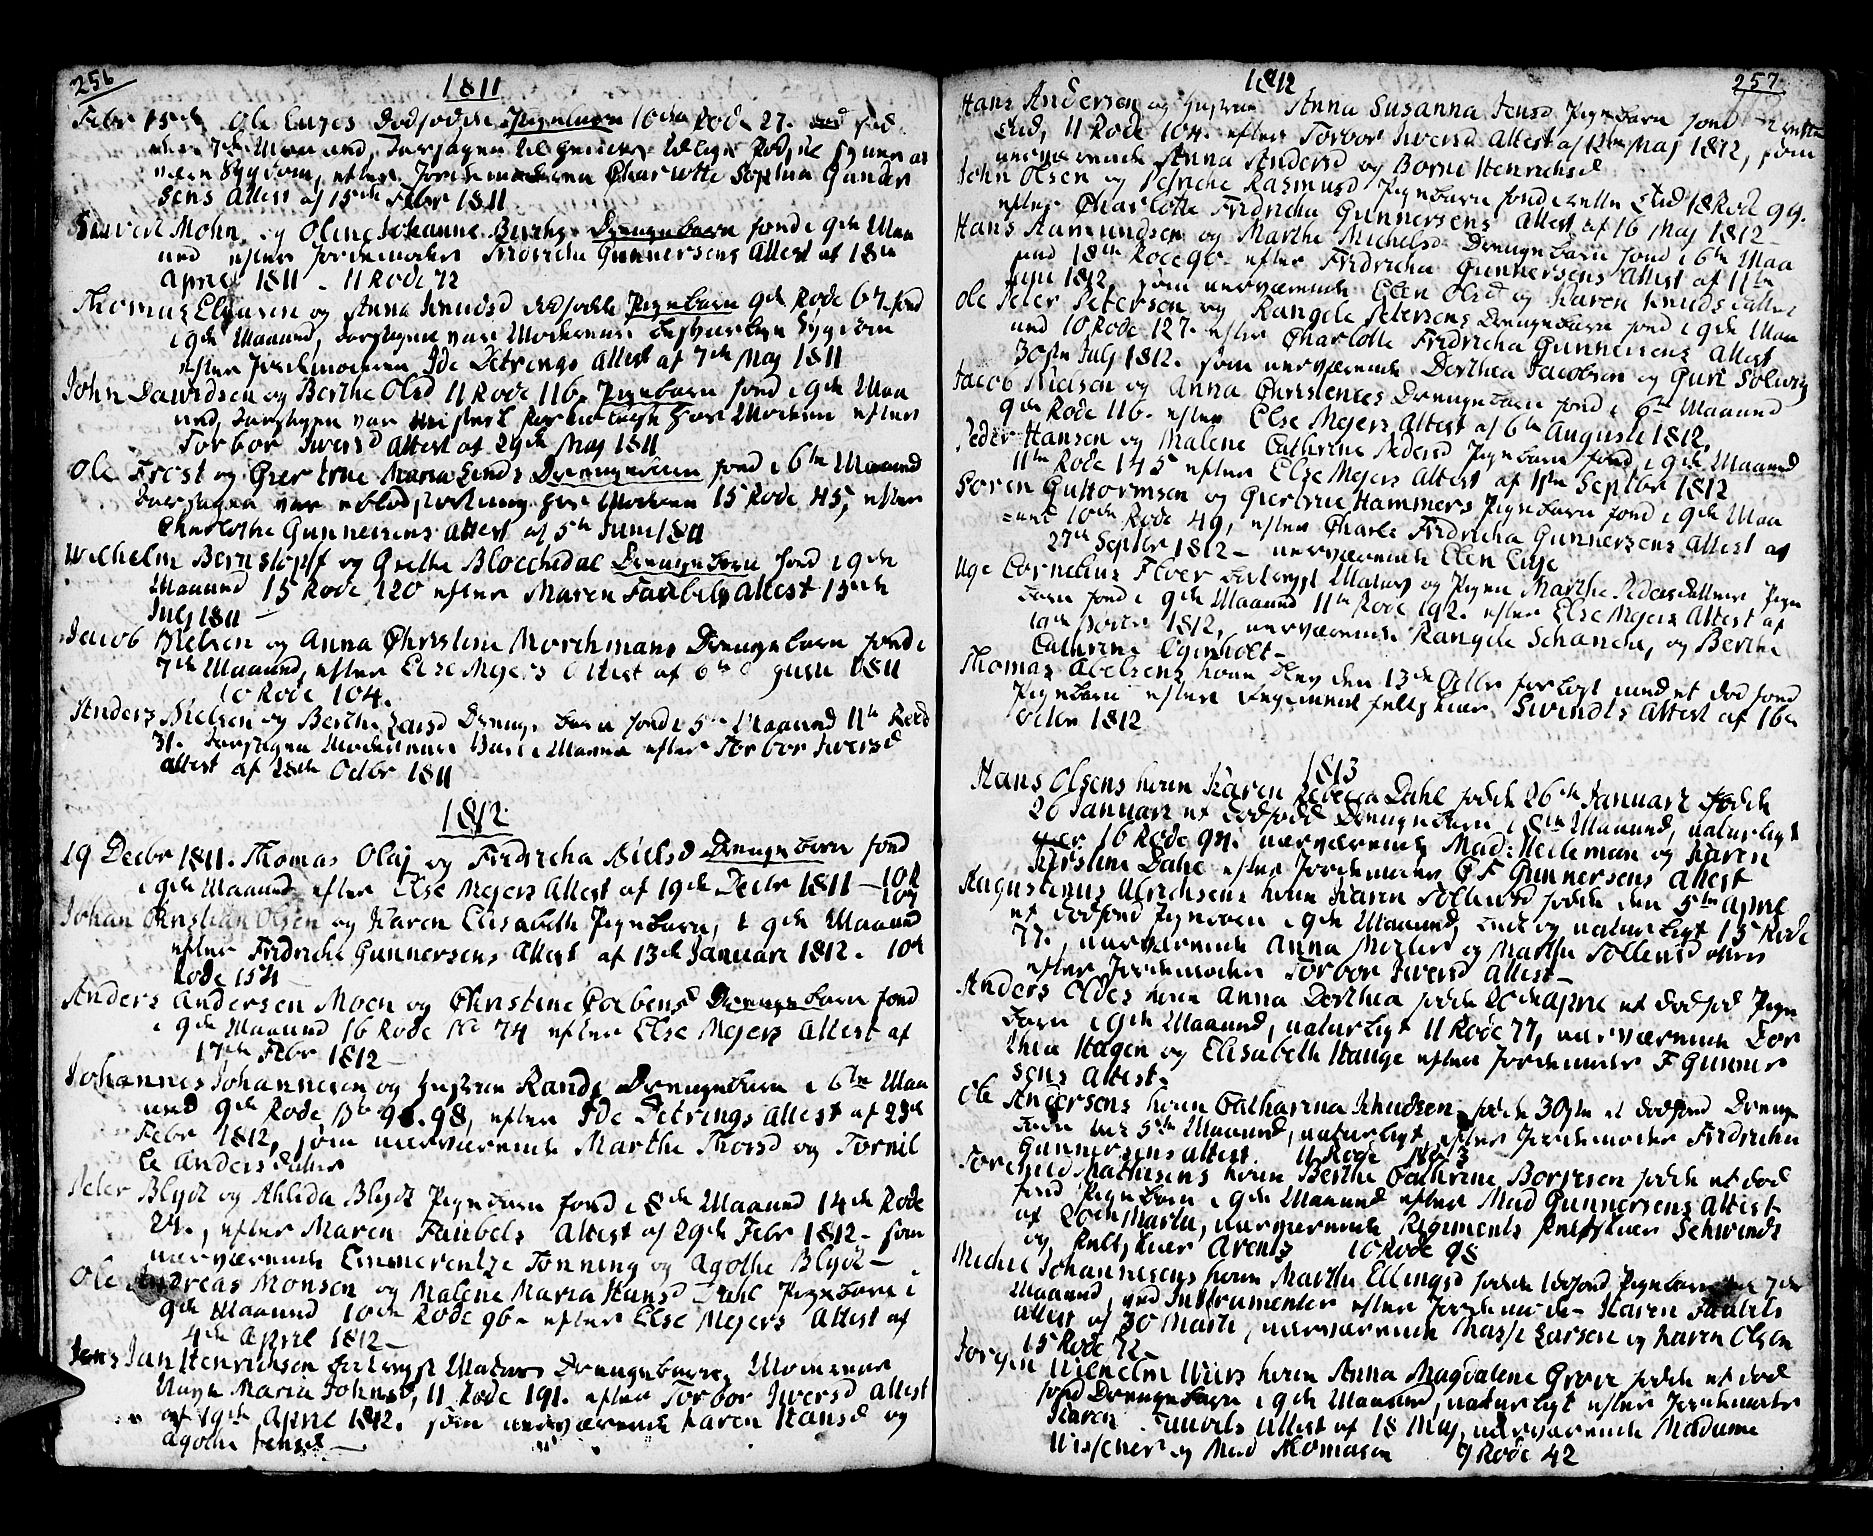 256
1811
Febr 15de Ole Enges Dødfødde Pigebarn 16de Rode 27. fød
7de Maaned, Aarsagen til
Sygdom, efter Jordemoderen Charlotte Sophia Gunder
sens Attest af 15de Febr 1811
Siwert Mohn og Oline Johanne Berthe Drengebarn fond i 9de Maa
ned efter Jordemoder Fridricha Gunnersens Attest af 18de
April 1811 - 11 Rode 72
Thomas Elgusen og Anna Knudsd dødfødde Pigebarn 9de Rode 67. fond
i 9de Maaned, Aarsagen var Moderens Sygdom
efter Jordemoderen Ide Detrings Attest af 7de Maj 1811
John Dawidsen og Berthe Olsd 11 Rode 116. Pigebarn fond i 9de Maa
ned, Aarsagen var hos Moderen efter
Torbor Iwersd Attest af 29de Maj 1811
Ole Frost og Giertrue Maria Lunds Drengebarn fond i 6te Maaned
Aarsagen var eblodstortning hos Moderen 15 Rode 45, efter
Charlothe Gunnersens Attest af 5te Juni 1811
Wilhelm Bernstopff og Grethe Blocchedal Drengebarn fond i 9de
Maaned 15 Rode 120 efter Maren Faubels Attest 15de
Julj 1811
Jacob Nielsen og Anna Christine Morchmans Drengebarn fond i
7de Maaned, efter Else Mejers Attest af 6te gusti 1811
10 Rode 104.
Anders Nielsen og Berthe Larsd Drengebarn fond i 5te Maaned 11te Rode
31. Aarsagen Moderens efter Torbor Iwersd
Attest af 28de Octbr 1811
1812
19 Decbr 1811. Thomas Olaj og Fridricha Nielsd Drengebarn fond
i 9de Maaned efter Else Mejers Attest af 19de Decbr 1811 - 10R
107
Johan Christian Olsen og Karen Elisabeth Pigebarn, i 9de Maaned
efter Fridriche Gunnersens Attest af 13de Januari 1812. 10de
Rode 154
Anders Andersen Moen og Christine Coebensd Drengebarn fond
i 9de Maaned 16 Rode No 74 efter Else Mejers Attest af
17de Febr 1812 -
Johannes Johannesen og Hustrue Randi Drengebarn i 6te Maa
ned 9de Rode No 98, efter Ide Detrings Attest af 23de
Febr 1812, som nerværende Marthe Thorsd og Tornil
le Andersdatter
Peter Blydt og Ahlida Blydt Pigebarn fond i 8de Maaned 14de Rode
24., efter Maren Faubels Attest af 29de Febr 1812 - som
nærværende Emmerentze Tønning og Agothe Blydt -
Ole Andreas Monsen og Malene Maria Hansd Dahl Pigebarn i
9de Maaned 10de Rode 96 - efter Else Mejers Attest af
4de April 1812 -
Jens Jan Henrichsen Matros Drengebarn, Moderens
Nagn Maria Johnsd, 11 Rode 191. efter Torbor Iwersd Attest
af 19de April 1812. som nerværende Karen Hansd og
Agothe Jensd -
257
1812
Hans Andersen og Hustrue Anna Susanna Jensd Pigebarn fond i rette
tid, 11 Rode 104. efter Torbor Iwersd Attest af 12te Maj 1812, som
nerværende Anna Andersd og Borni Henrichsd
John Olsen og Pedriche Rasmusd Pigebarn fond i rette tid 18 Rode 99.
efter Charlotte Fridricha Gunnersens Attest af 16 Maj 1812 -
Hans Aamundsen og Marthe Michelsd Drengebarn fond i 6te Maa
ned 18de Rode 90 - efter Fridricha Gunnersens Attest af 11te
Juni 1812 som nerværende Elen Olsd og Karen Knudsdatter
Ole Peter Petersen og Rangele Petersens Drengebarn fond i 9de Maa
ned 10 Rode 127. efter Charlotte Fridricha Gunnersens Attest
30ste Julj 1812. som nerværende Dorthea Jacobsen og Guri Solwig
Jacob Nielsen og Anna Christences Drengebarn fond i 6te Maaned
9de Rode 116. efter Else Mejers Attest af 6te Augusti 1812,
Peder Hansen og Malene Cathrine Pedersd Pigebarn fond i 9de Maaned
11te Rode 145 efter Else Mejers Attest af 11te Septbr 1812
Soren Guttormsen og Giertrue Hammers Pigebarn fond i 9de Maa
ned 10de Rode 49, efter Charle Fridricha Gunnersens Attest af
27de Septbr 1812 - nerværende Elen Lisje
Uge Cornelius Floer Matros og Pigen Marthe Pedersdatters Pige
barn fond i 9de Maaned 11te Rode 192. efter Else Mejers Attest af
19de Octbr 1812, nerværende Rangele Schanche, og Berthe
Cathrine Egenholt -
Thomas Abelsens kone blev den 13de Octbr forløst med et død fond
Pigebarn efter Regiments feltskiær Swindts Attest af 16de
Octbr 1812
1813
Hans Olsens kone Karen Rebecca Dahl fødde 26de Januari fødde
26 Januari et dødfødd Drengebarn i 8de Maaned, naturligt
16 Rode 94. nærværende Mad: Heileman og Karen
Kirstine Dahl efter Jordemoder C F Gunnersens Attest
Augustinus Ulrichsens kone Karen Tollevsd fødde den 5te April
et dødfød Pigebarn i 9de Maaned, naturligt 15 Rode
77., nærværende Anna Møller og Marthe Tollevsd
efter Jordemoder Torbor Iwersd Attest -
Anders Oldes kone Anna Dorthea fødde 20de April et dødfød Pige
barn i 9de Maaned, naturligt 11 Rode 77, nerværende Dor
thea Hagen og Elisabeth Hauge efter Jordemoder F Gunner
sens Attest.
Ole Andersens kone Catharina Knudsen fødde 30ste et dødfond Drenge
barn 5te Maaned, naturligt, efter Jordemoder Fridricha
Gunnersens Attest. 11 Rode No 3
Torchild Mathisens kone Berthe Cathrine Borgesen fødde et død
fond Pigebarn i 9de Maaned efter Mad Gunnersens Attest
af 20de Martii, nærværende Regiments feltskiær Schwindt
og feltskiær Arentz 10 Rode 98
Michel Johannesens kone Marthe Ellingsd fødde dødfond Pigebarn 7de
Maaned, ved Instrumenter efter Jordemoder Karen Faubels
Attest af 30 Marti, nerværende Marthe Larsen og Karen Olsen
15 Rode 72 -
Jørgen Wilhelm Wiers kone Anna Magdalene Grove fødde et død
fond Drengebarn i 9de Maaned, naturligt efter Jordemoder
Karen Faubels Attest af 18 Maj, nerværende Madame
Wissener og Mad Thomasen 9 Rode 42